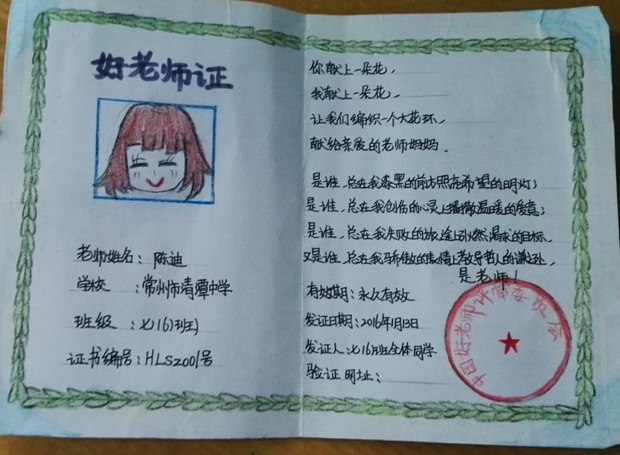 好老师证
老师姓名：陈迪
学校：常州市清潭中学
班级：七（6）班
证书编号：HLS2001号
你献上一朵花，
我献上一朵花，
让我们编织一个大花环，
献给亲爱的老师妈妈。
是谁，总在我漆黑的前方照亮希望的明灯；
是谁，总在我创伤的心灵上播撒温暖的爱意；
是谁，总在我失败的旅途上引燃渴求的目标，
又是谁，总在我骄傲的表情上教导哲人的谦逊，
是老师！
有效期：永久有效
发证日期：2016年1月13日
发证人：七（6）班全体同学
验证网址：
中国好老师评审委员会